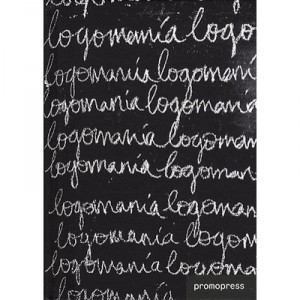 logomanía logo
logomanía logomaní
logomanía logomaní
logomanía logoman
logomanía logoman
logomanía logoma
logomanía logom
logomanía logom
logomanía logo
promopress